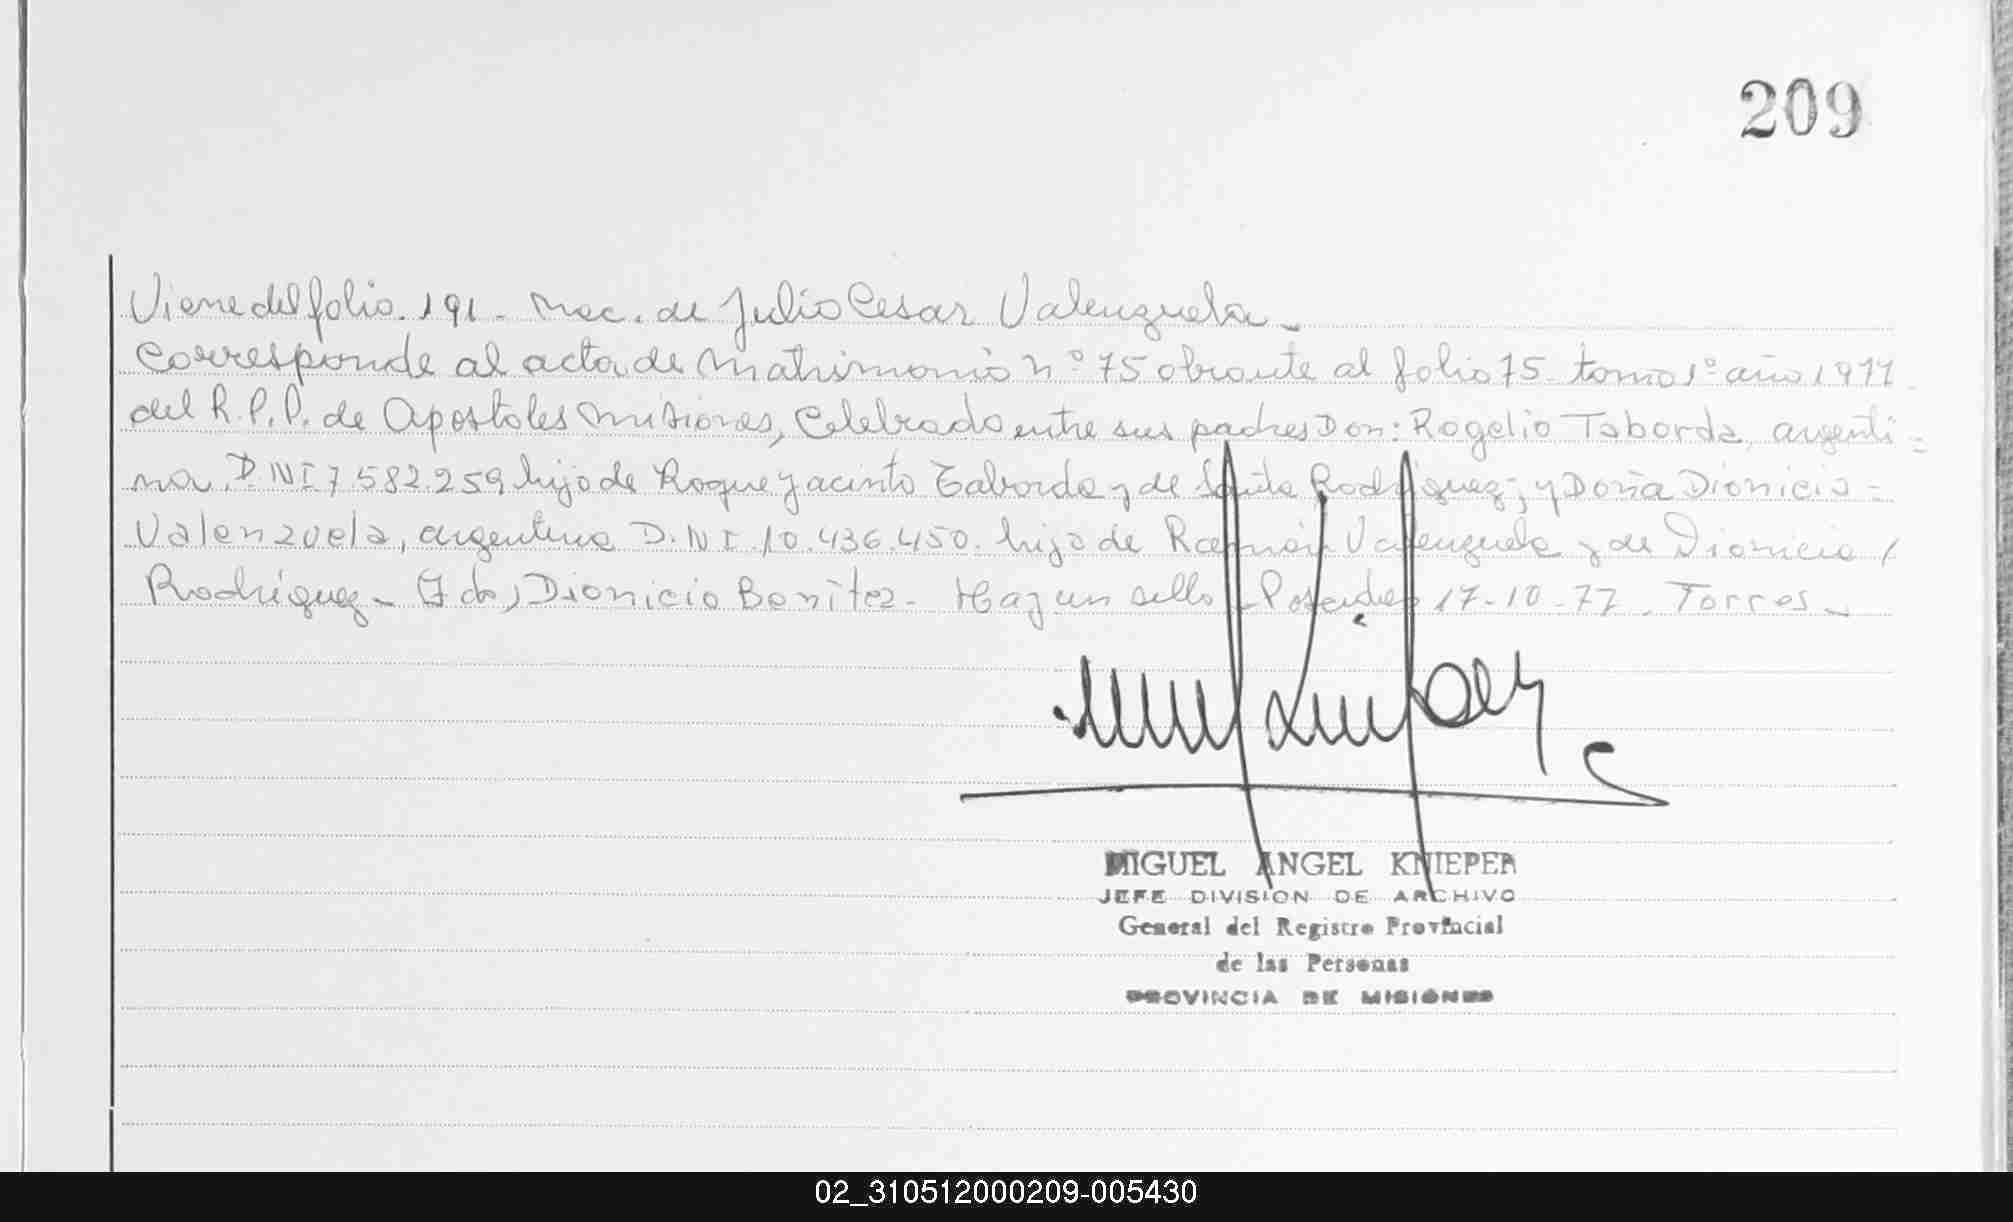 209
Viene del folio. 191. Nac. de Julio Cesar Valenzuela.
Corresponde al acta de Matrimonio n° 75 obrante al folio 75. tomo 1° año 1977
del R.P.P. de Apostoles Misiones, Celebrado entre sus padres Don: Rogelio Taborda, argenti=
no. D.NI 7 582.259 hijo de Roque Jacinto Taborda y de Rodriguez; y Doña Dionicia =
Valenzuela, argentina D.NI. 10.436.450. hija de Ramón Valenzuela y de Dionicia /
Rodríguez - (Fdo) Dionicio Benítez - Hay un sello - Posadas 17-10-77. Torres -
MIGUEL ANGEL KNIEPER
JEFE DIVISION DE ARCHIVO
General del Registro Provincial
de las Personas
PROVINCIA DE MISIONES
02_310512000209-005430